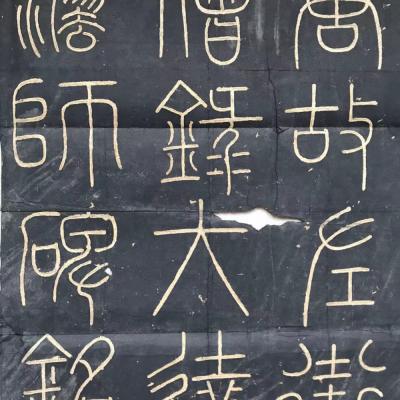 唐故左街
僧錄大達
法師碑銘